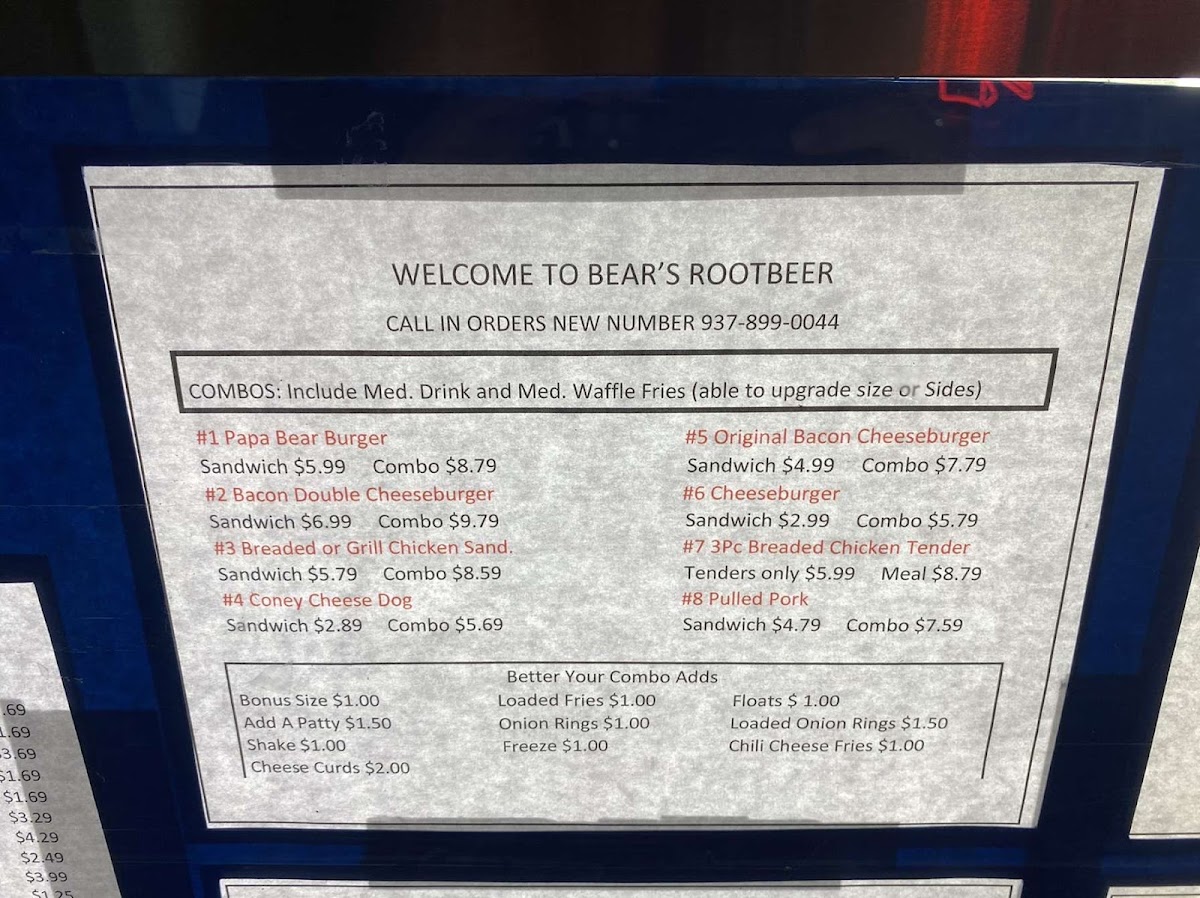 WELCOME TO BEAR'S ROOTBEER
CALL IN ORDERS NEW NUMBER 937-899-0044
COMBOS: Include Med. Drink and Med. Waffle Fries (able to upgrade size or Sides)
#1 Papa Bear Burger
Sandwich $5.99 Combo $8.79
#2 Bacon Double Cheeseburger
Sandwich $6.99 Combo $9.79
#3 Breaded or Grill Chicken Sand.
Sandwich $5.79 Combo $8.59
#4 Coney Cheese Dog
Sandwich $2.89 Combo $5.69
#5 Original Bacon Cheeseburger
Sandwich $4.99 Combo $7.79
#6 Cheeseburger
Sandwich $2.99 Combo $5.79
#7 3Pc Breaded Chicken Tender
Tenders only $5.99 Meal $8.79
#8 Pulled Pork
Sandwich $4.79 Combo $7.59
Better Your Combo Adds
Bonus Size $1.00 Loaded Fries $1.00 Floats $ 1.00
Add A Patty $1.50 Onion Rings $1.00 Loaded Onion Rings $1.50
Shake $1.00 Freeze $1.00 Chili Cheese Fries $1.00
Cheese Curds $2.00
.69
1.69
3.69
$1.69
$1.69
$3.29
$4.29
$2.49
$3.99
$1.25